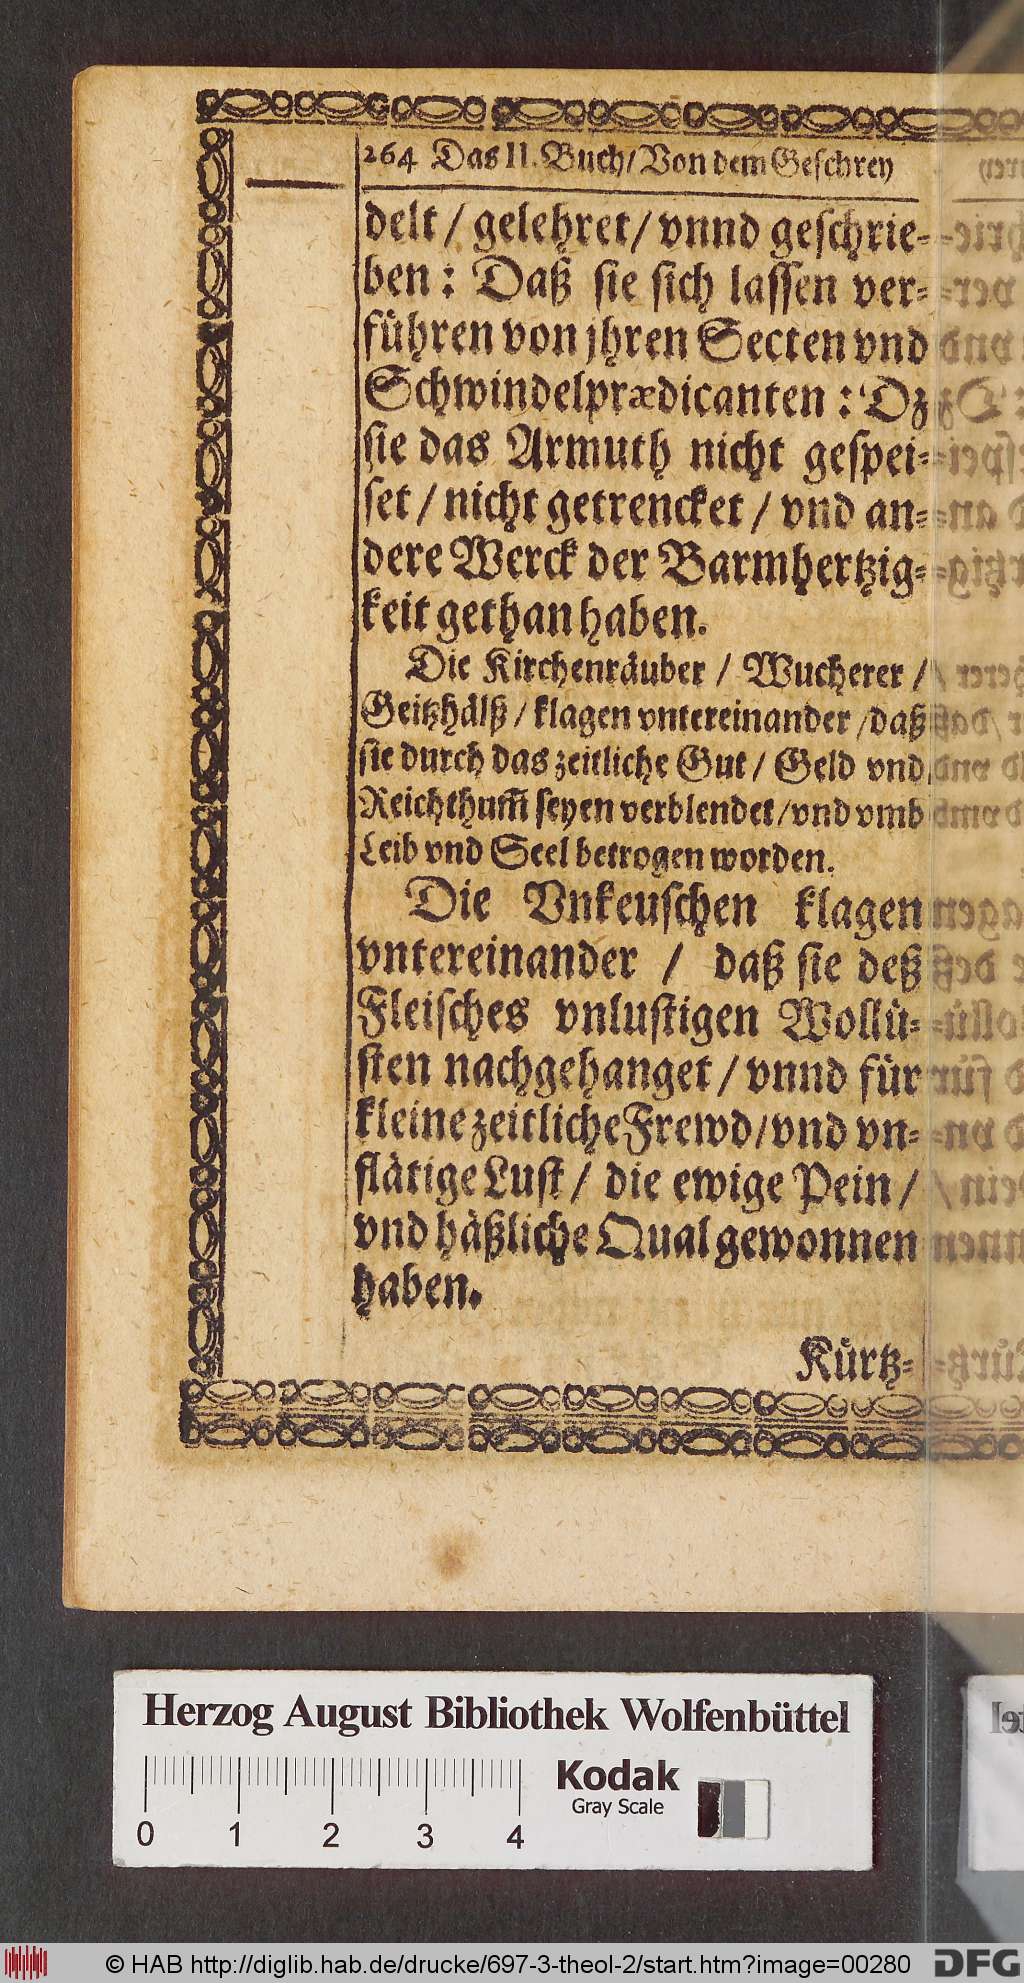 264 Das II. Buch/ Von dem Geschrey
delt / gelehret / vnnd geschrie-
ben : Daß sie sich lassen ver-
führen von jhren Secten vnd
Schwindelprædicanten : Dz
sie das Armuth nicht gespei-
set / nicht getrencket / vnd an-
dere Werck der Barmhertzig-
keit gethan haben.
Die Kirchenräuber / Wucherer /
Geitzhälß / klagen vntereinander / daß
sie durch das zeitliche Gut / Geld vnd
Reichthum̃ seyen verblendet / vnd vmb
Leib vnd Seel betrogen worden.
Die Vnkeuschen klagen
vntereinander / daß sie deß
Fleisches vnlustigen Wollü-
sten nachgehanget / vnnd für
kleine zeitliche Frewd / vnd vn-
flätige Lust / die ewige Pein /
vnd häßliche Qual gewonnen
haben.
Kürtz-
Herzog August Bibliothek Wolfenbüttel
Kodak
Gray Scale
0 1 2 3 4
© HAB http://diglib.hab.de/drucke/697-3-theol-2/start.htm?image=00280
DFG